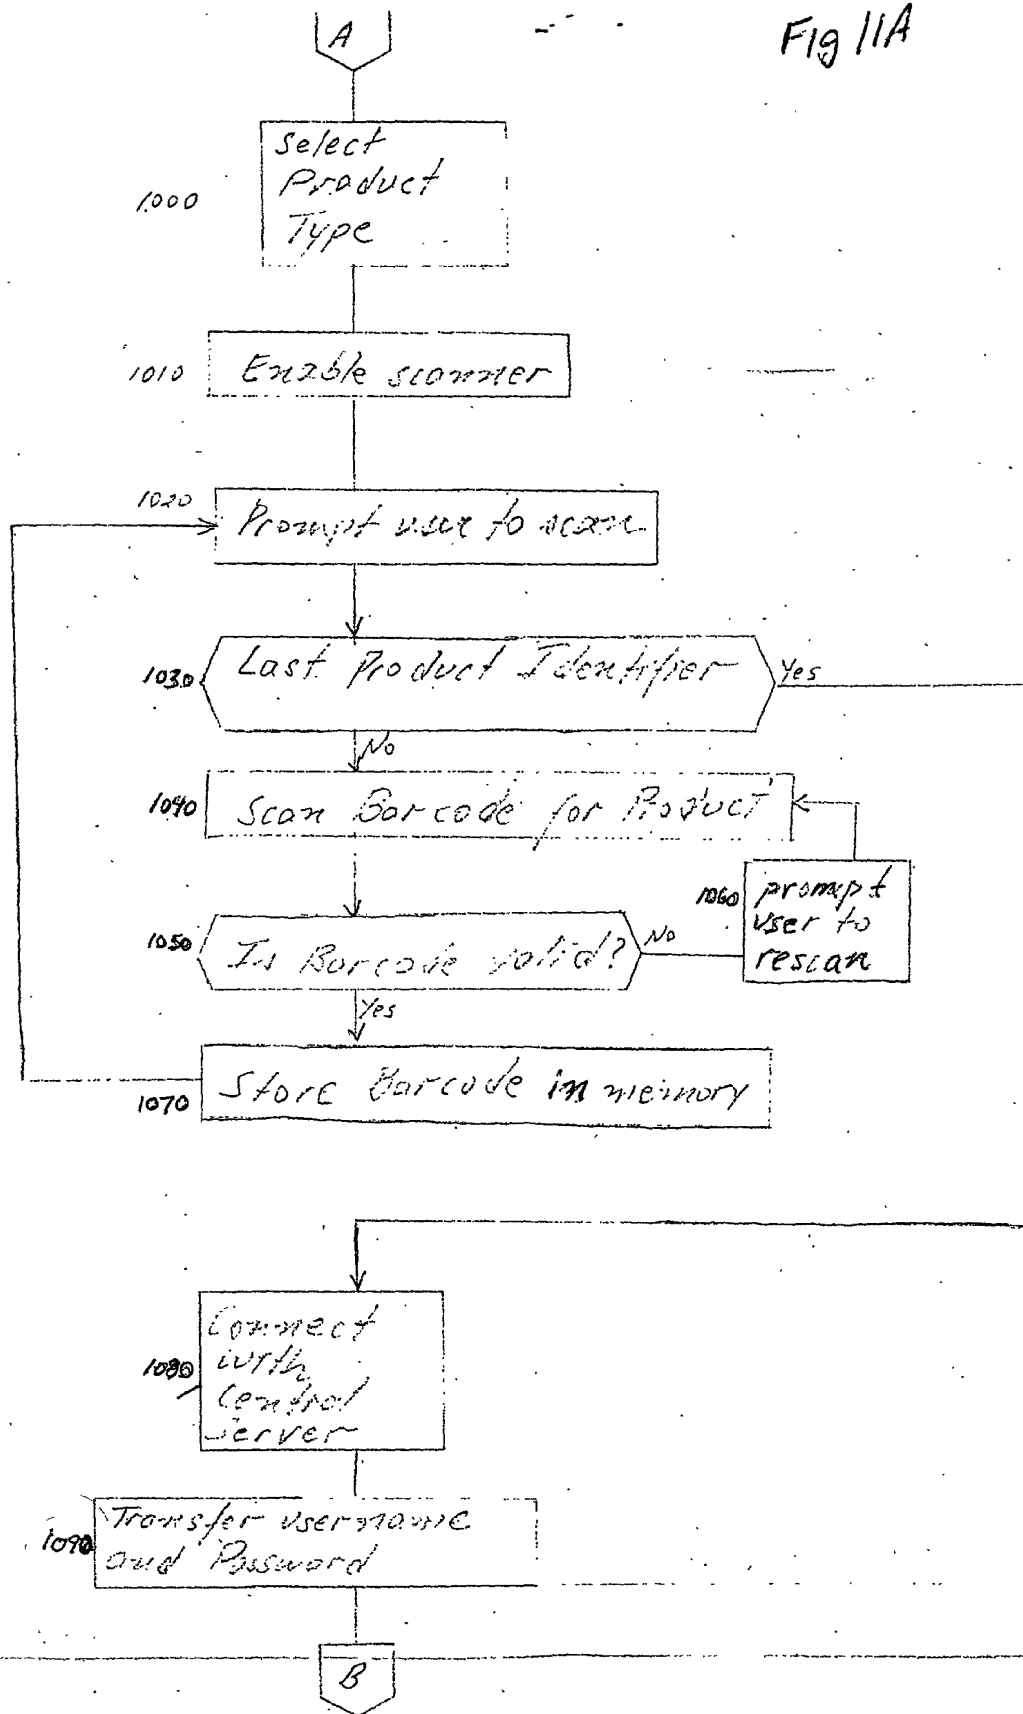 A
Fig 11A
Select
Product
Type
1000
1010
Enable scanner
1020
Prompt user to scan
1030
Last Product Identifier
Yes
No
1040
Scan Barcode for Product
1060
prompt
user to
rescan
1050
Is Barcode valid?
No
Yes
Store Barcode in memory
1070
Connect
with
Central
Server
1080
Transfer username
and Password
1090
B